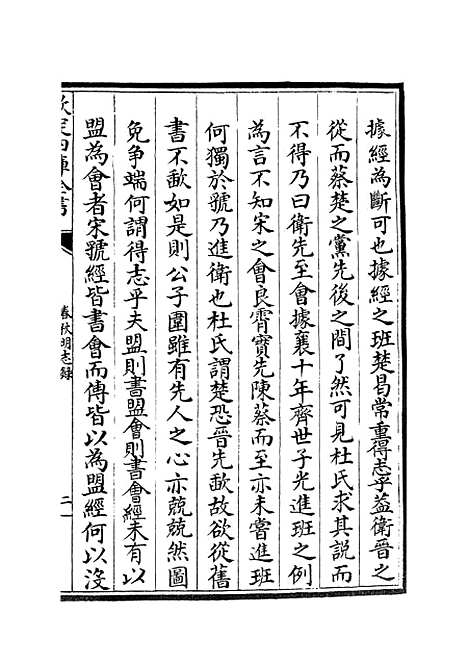 據經為斷可也據經之班楚曷常重得志乎葢衛晉之
從而蔡楚之黨先後之間了然可見杜氏求其説而
不得乃曰衛先至會據襄十年齊世子光進班之例
為言不知宋之會良霄實先陳蔡而至亦未嘗進班
何獨於虢乃進衛也杜氏謂楚恐晉先歃故欲從舊
書不歃如是則公子圍雖有先人之心亦兢兢然圖
免爭端何謂得志乎夫盟則書盟會則書會經未有以
盟為會者宋虢經皆書會而傳皆以為盟經何以沒
欽定四庫全書
春秋明志録